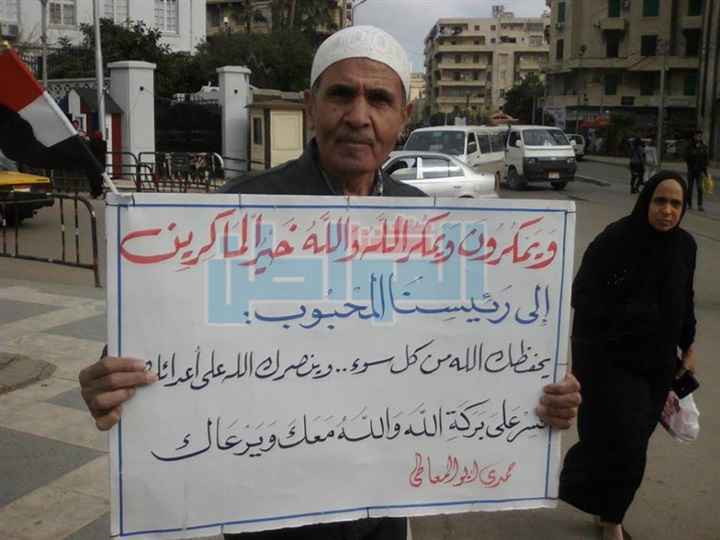 وَيَمكرُونَ وَيمكرُ اللَّهُ وَاللَّهُ خَيرُ الماكرِين
إلى رَئيسِنَا المَحبُوب:
يحفظك الله من كل سوء.. وينصرك الله على أعدائك
سر عَلى بَركَةِ اللَّه وَاللَّهُ مَعَكَ وَيَرعَاك
حمدى ابو المعاطى